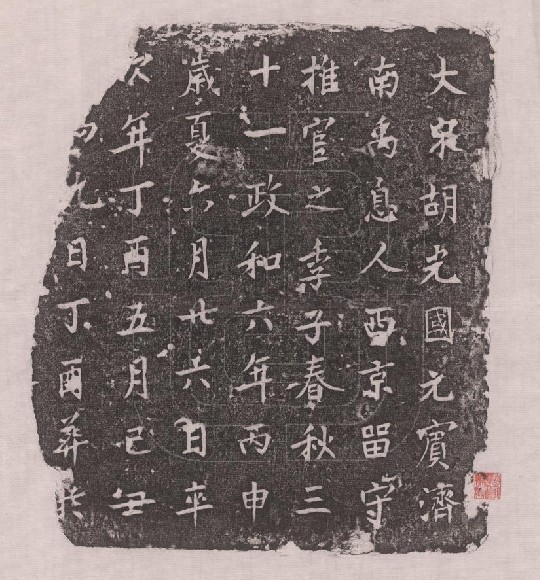 大宋胡光國元賓濟
南禹息人西京留守
推官之季子春秋三
十一政和六年丙申
歲夏六月廿六日卒
次年丁酉五月己丑
九日丁酉葬於